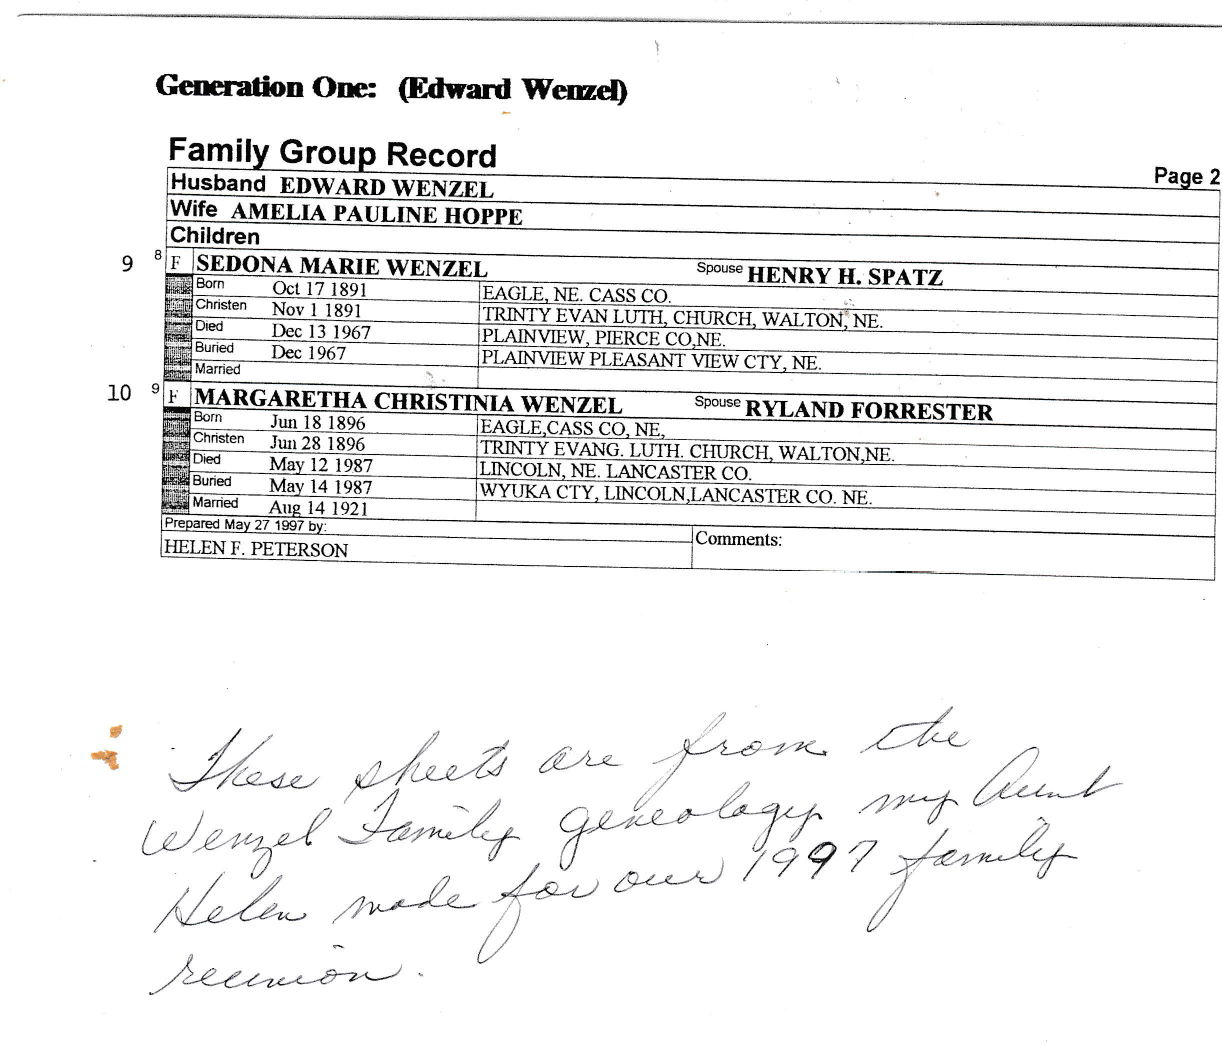 Generation One: (Edward Wenzel)
Family Group Record
Page 2
Husband EDWARD WENZEL
Wife AMELIA PAULINE HOPPE
Children
9 8 F SEDONA MARIE WENZEL Spouse HENRY H. SPATZ
Born Oct 17 1891 EAGLE, NE. CASS CO.
Christen Nov 1 1891 TRINTY EVAN LUTH, CHURCH, WALTON, NE.
Died Dec 13 1967 PLAINVIEW, PIERCE CO,NE.
Buried Dec 1967 PLAINVIEW PLEASANT VIEW CTY, NE.
Married
10 9 F MARGARETHA CHRISTINIA WENZEL Spouse RYLAND FORRESTER
Born Jun 18 1896 EAGLE,CASS CO, NE,
Christen Jun 28 1896 TRINTY EVANG. LUTH. CHURCH, WALTON,NE.
Died May 12 1987 LINCOLN, NE. LANCASTER CO.
Buried May 14 1987 WYUKA CTY, LINCOLN,LANCASTER CO. NE.
Married Aug 14 1921
Prepared May 27 1997 by:
HELEN F. PETERSON
Comments:
These sheets are from the
Wenzel Family geneology my Aunt
Helen made for our 1997 family
reunion.